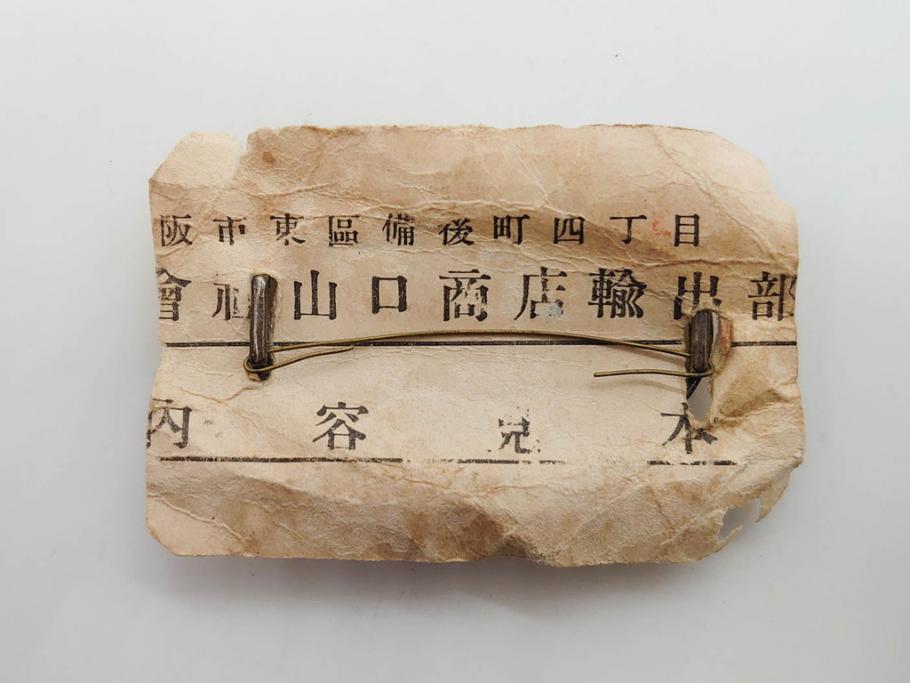 阪市東區備後町四丁目
會社山口商店輸出部
內容見本